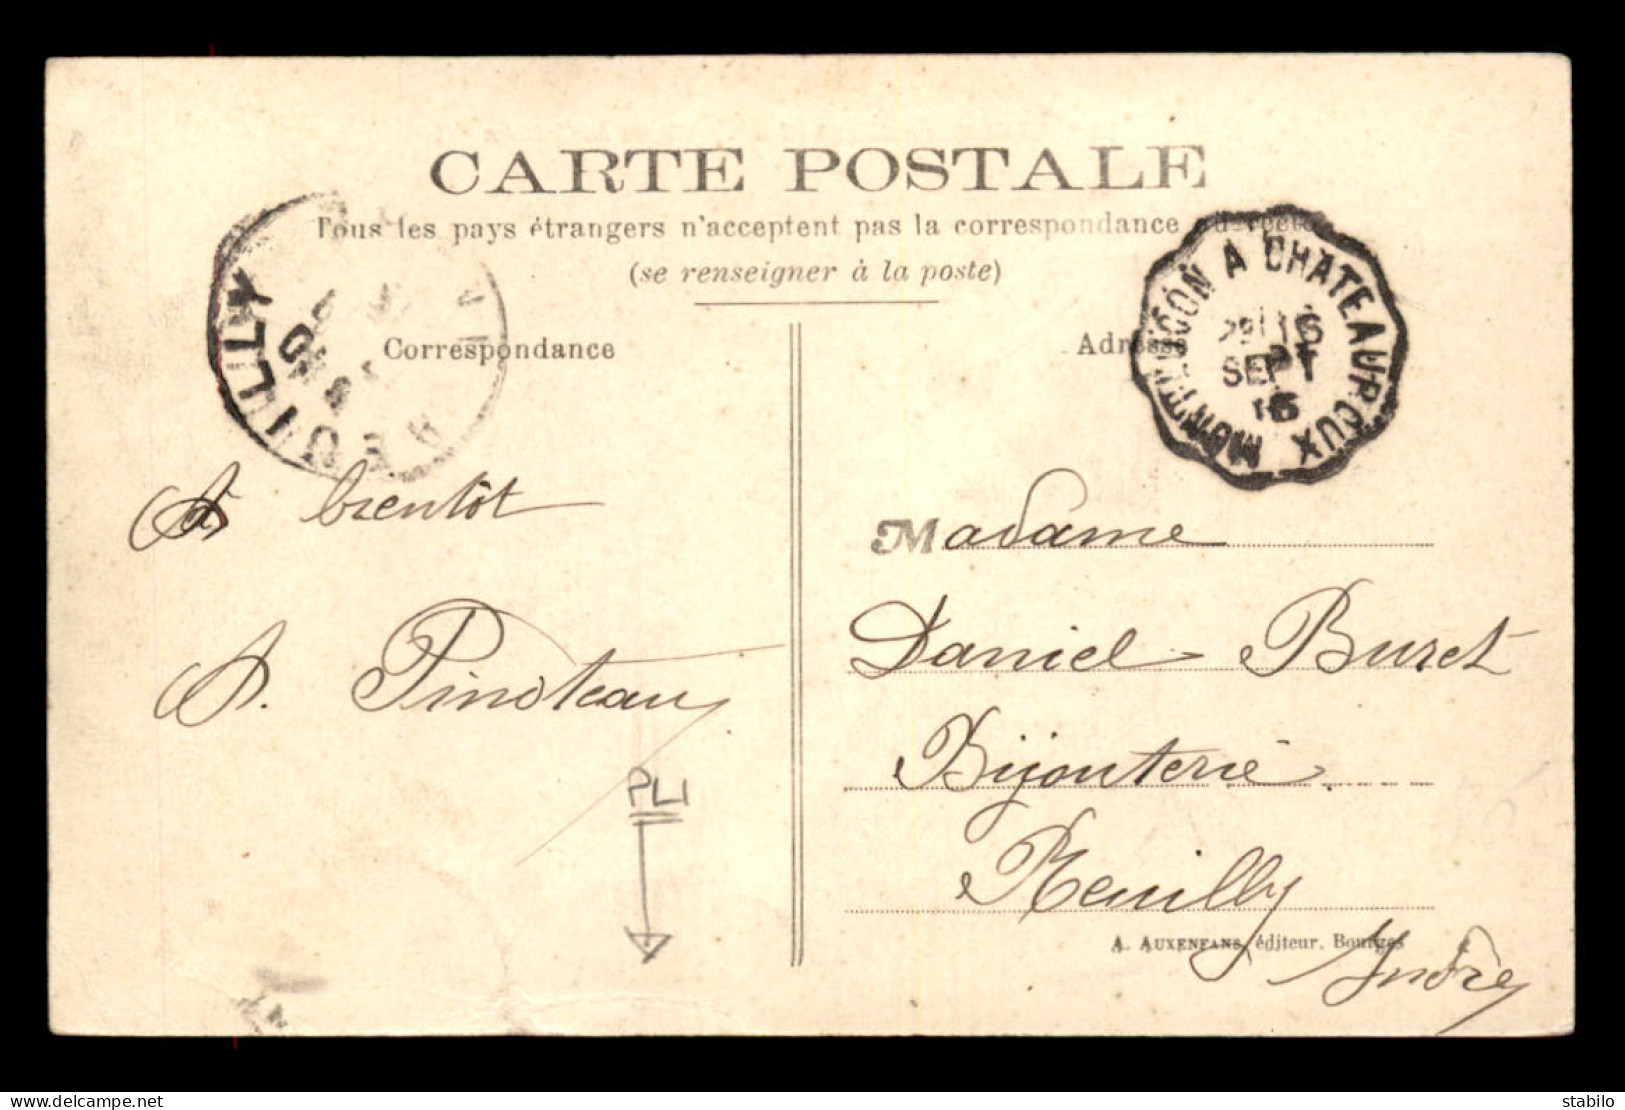 CARTE POSTALE
Tous les pays étrangers n'acceptent pas la correspondance
(se renseigner à la poste)
Correspondance
Adresse
REUILLY
MONTLUÇON A CHATEAUROUX
SEPT
A bientôt
A. Pinoteau
PLI
Madame
Daniel Buret
Bijouterie
Reuilly
Indre
A. AUXENFANS, éditeur. Bourges
www.delcampe.net
stabilo